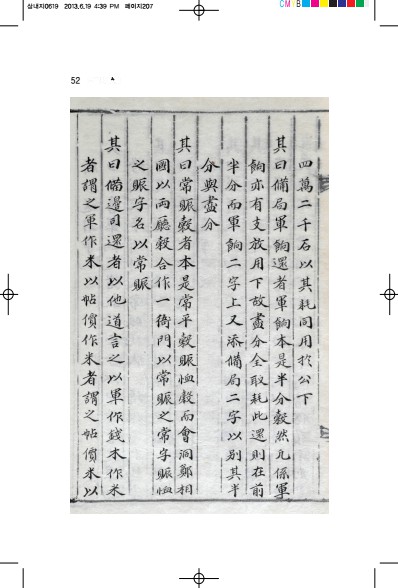 삼내지0619 2013.6.19 4:39 PM 페이지207
CM B
52
四萬二千石以其耗同用於公下
其曰備局軍餉還者軍餉本是半分穀然凡係軍
餉亦有支放用下故盡分全取耗此還則在前
半分而軍餉二字上又添備局二字以別其半
分與盡分
其曰常賑穀者本是常平穀賑恤穀而會洞鄭相
國以兩廳穀合作一衙門以常賑之常字賑恤
之賑字名以常賑
其曰備邊司還者以他道言之以軍作錢本作米
者謂之軍作米以帖價作米者謂之帖價米以